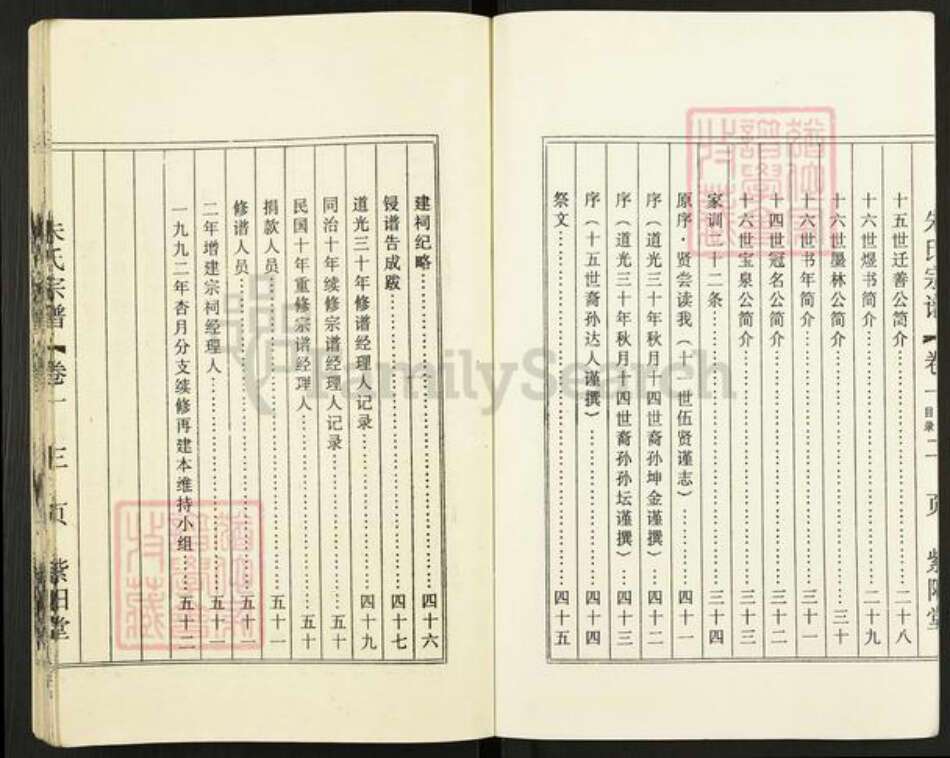 朱氏宗谱【卷一 目录 二页 紫阳堂
十五世迁善公简介……二十八
十六世煜书简介……二十九
十六世墨林公简介……三十
十六世书年简介……三十一
十四世冠名公简介……三十二
十六世宝泉公简介……三十三
家训二十二条……三十四
原序·贤尝读我(十一世伍贤谨志)……四十一
序(道光三十年秋月十四世裔孙坤金谨撰)……四十二
序(道光三十年秋月十四世裔孙孙坛谨撰)…四十三
序(十五世裔孙达人谨撰)……四十四
祭文……四十五
建祠纪略……四十六
锓谱告成跋……四十七
道光三十年修谱经理人记录……四十九
同治十年续修宗谱经理人记录……五十
民国十年重修宗谱经理人……五十
捐款人员……五十一
修谱人员……五十一
二年增建宗祠经理人……五十一
一九九二年杏月分支续修再建本维持小组……五十二
朱氏宗谱【卷一 三页 紫阳堂
FamilySearch